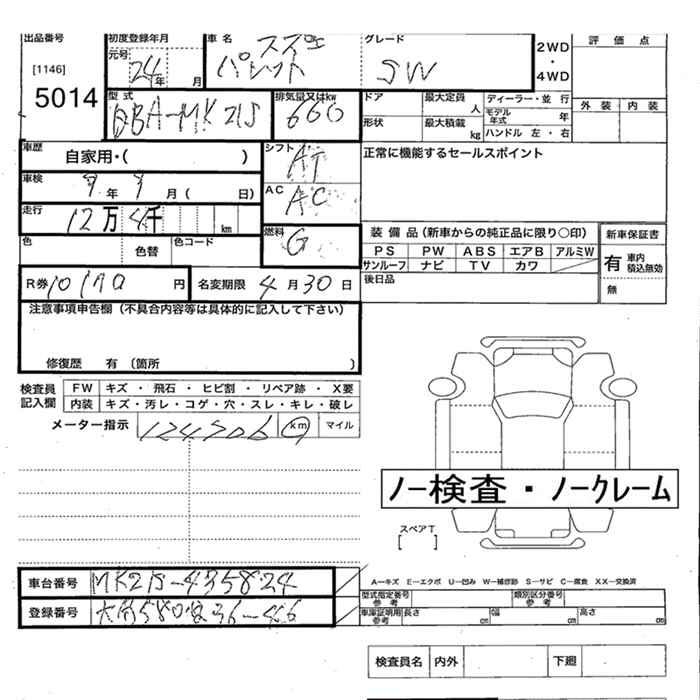 出品番号 初度登録年月 車名 スズキ グレード 評価点
[1146] 元号 24年 月 パレット SW 2WD・4WD
5014 型式 DBA-MK21S 排気量又はkw 660 ドア 最大定員 人 ディーラー・並行 外装 内装
形状 最大積載 kg モデル年式 年
ハンドル 左・右
車歴 自家用・( ) シフト AT 正常に機能するセールスポイント
車検 年 月( 日) AC AC
走行 12万4千 km 燃料 G 装備品(新車からの純正品に限り○印) 新車保証書
色 色替 色コード PS PW ABS エアB アルミW 有 車内積込無効
サンルーフ ナビ TV カワ 無
R券 円 名変期限 4月30日 後日品
注意事項申告欄(不具合内容等は具体的に記入して下さい)
修復歴 有(箇所 )
検査員記入欄 FW キズ・飛石・ヒビ割・リペア跡・X要
内装 キズ・汚レ・コゲ・穴・スレ・キレ・破レ
メーター指示 km マイル
ノー検査・ノークレーム
スペアT
[ ]
車台番号 MK21S-435824
A-キズ E-エクボ U-凹み W-補修跡 S-サビ C-腐食 XX-交換済
登録番号
型式指定番号 参考 類別区分番号 参考
車庫証明用 参考 長さ cm 幅 cm 高さ cm
検査員名 内外 下廻